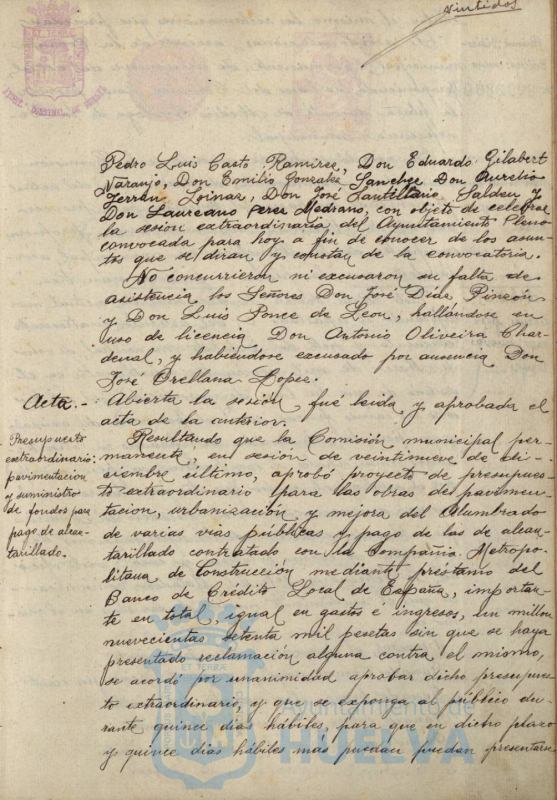 vintidos
Pedro Luis Casto Ramirez, Don Eduardo Gilabert
Naranjo, Don Emilio Gonzalez Sanchez Don Aurelio
Terrán Loinaz, Don José Santillario, Salden y
Don Laureano Perez Medrano, con objeto de celebrar
la sesion extraordinaria del Ayuntamiento Pleno
convocada para hoy a fin de conocer de los asun-
tos que se diran y constan de la convocatoria.
No concurrieron ni excusaron su falta de
asistencia los Señores Don José Diaz Pinzón
y Don Luis Ponce de Leon, hallándose en
uso de licencia Don Antonio Oliveira Char-
denal, y habiéndose excusado por ausencia Don
José Orellana Lopez.
Acta.- Abierta la sesion fué leida y aprobada el
acta de la anterior.
Presupuesto
extraordinario:
pavimentacion
y suministro
de fondos para
pago de alcan-
tarillado.
Resultando que la Comisión municipal per-
manente, en sesión de veintinueve de di-
ciembre último, aprobó proyecto de presupues-
to extraordinario para las obras de pavimen-
tacion, urbanización y mejora del Alumbrado
de varias vias públicas y pago de las de alcan-
tarillado contratado con la Compañia Metropo-
litana de Construcción mediante préstamo del
Banco de Crédito Local de España, importan-
te en total, igual en gastos é ingresos, un millon
nuevecientas setenta mil pesetas sin que se haya
presentado reclamación alguna contra el mismo,
se acordó por unanimidad aprobar dicho presupues-
to extraordinario, y que se exponga al público du-
rante quince dias hábiles, para que en dicho plazo
y quince dias hábiles más puedan puedan presentarse
Ayuntamiento de
HUELVA